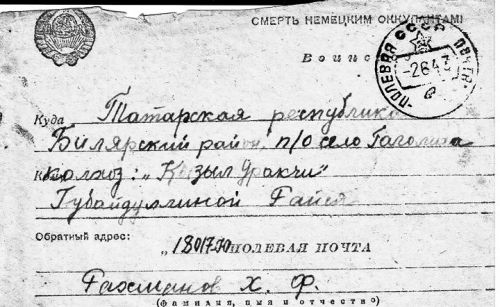 СМЕРТЬ НЕМЕЦКИМ ОККУПАНТАМ!
ПОЛЕВАЯ ПОЧТА
СССР
-2 6 43
Куда Татарская республика
Билярский район п/о село
колхоз: „Кызыл Уракчи"
Губайдуллиной
Обратный адрес:
ПОЛЕВАЯ ПОЧТА
Рахманов Х. Ф.
(фамилия, имя и отчество)